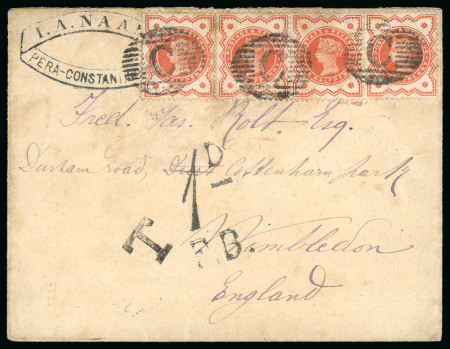 I. A. NAA
PERA-CONSTANTI
C
C
C
Fred. Jas. Rolt. Esq.
Durham road, Dust Cottenham park
1D
T
F.B.
Wimbledon
England